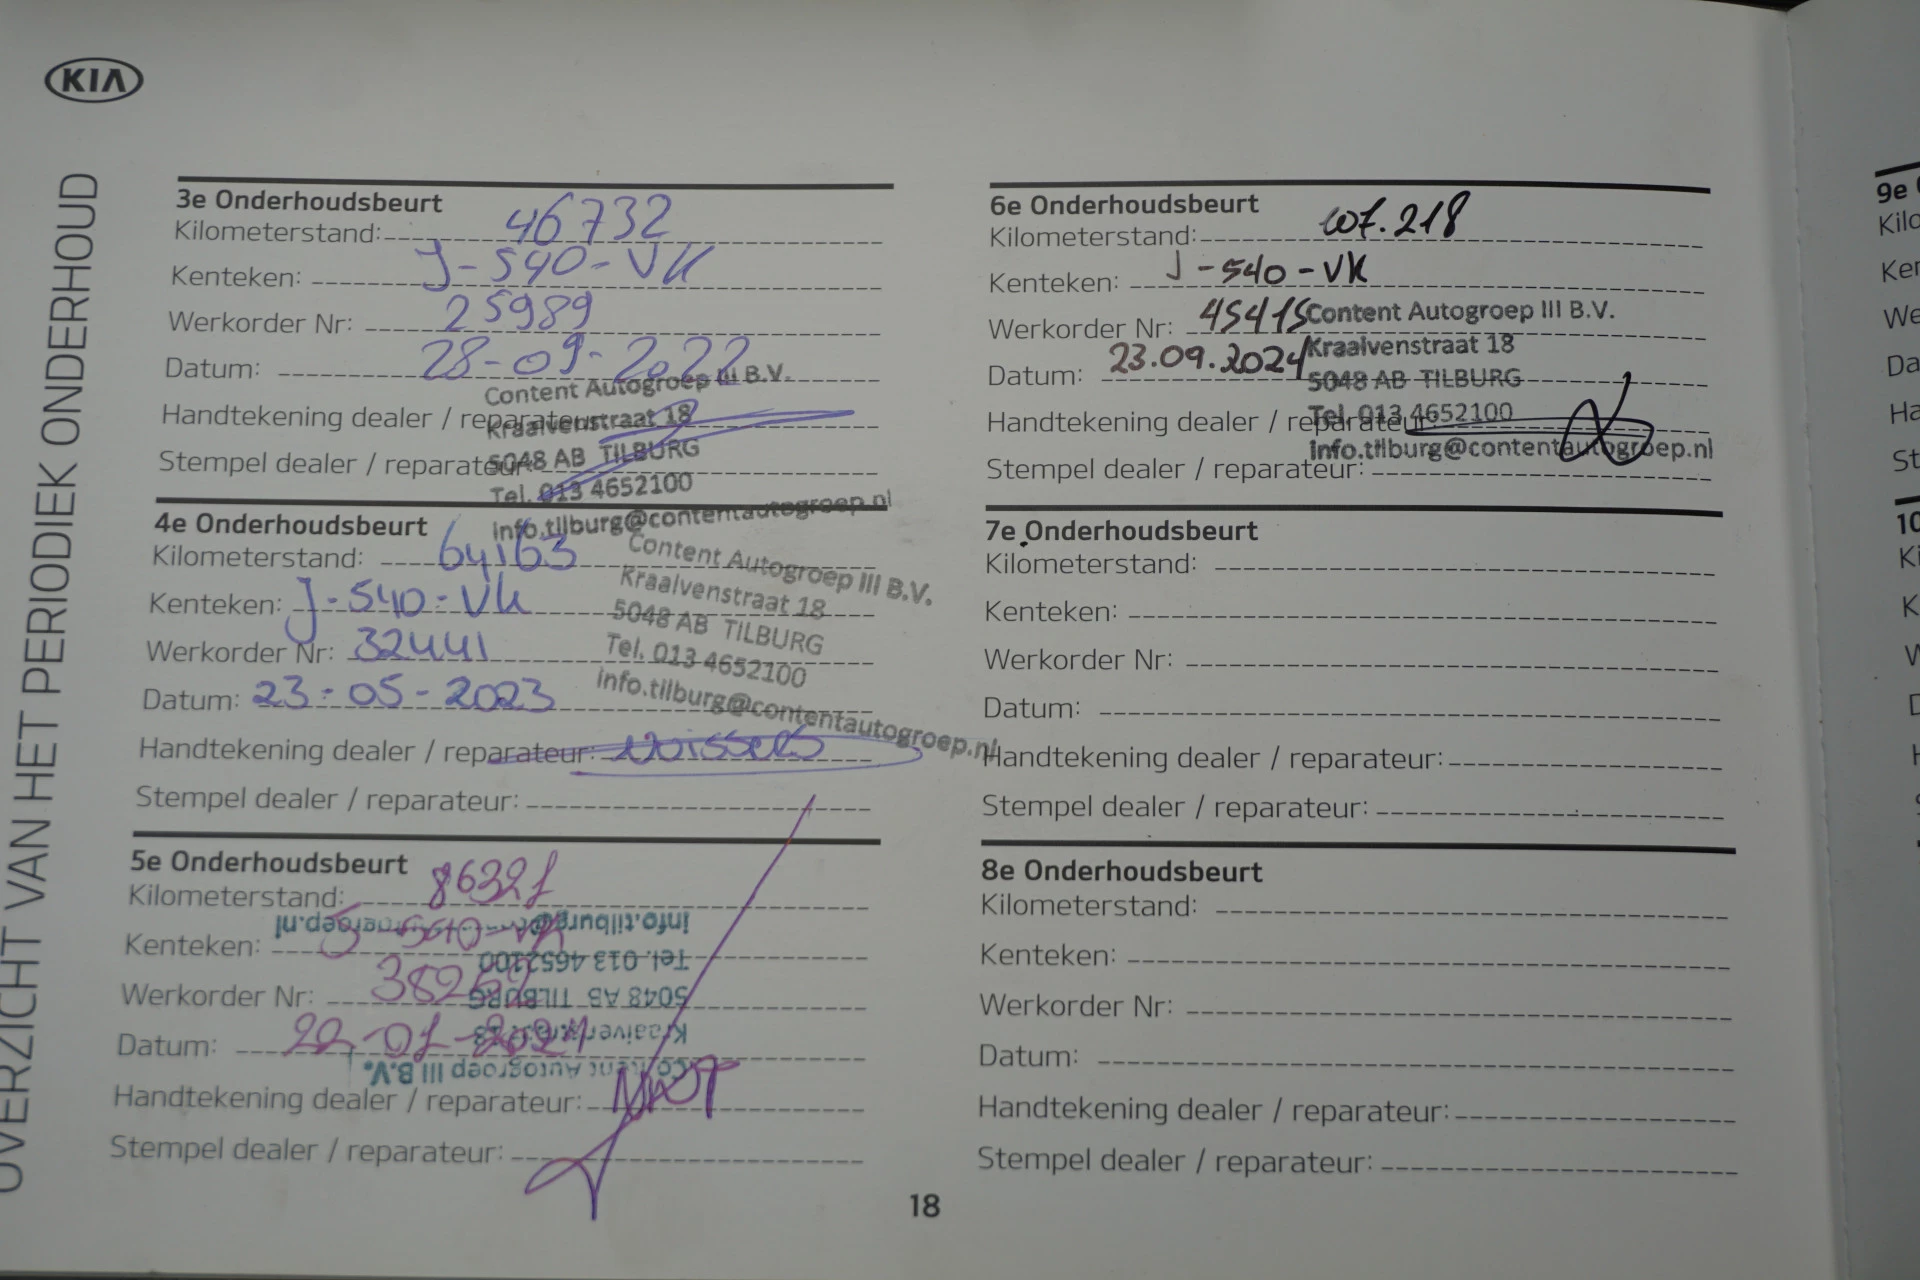 KIA
OVERZICHT VAN HET PERIODIEK ONDERHOUD
3e Onderhoudsbeurt
Kilometerstand: 46732
Kenteken: J-540-VK
Werkorder Nr: 25989
Datum: 28-09-2022
Handtekening dealer / reparateur:
Stempel dealer / reparateur:
Content Autogroep III B.V.
Kraalvenstraat 18
5048 AB TILBURG
Tel. 013 4652100
info.tilburg@contentautogroep.nl
4e Onderhoudsbeurt
Kilometerstand: 64163
Kenteken: J-540-VK
Werkorder Nr: 32441
Datum: 23-05-2023
Handtekening dealer / reparateur:
Stempel dealer / reparateur:
Content Autogroep III B.V.
Kraalvenstraat 18
5048 AB TILBURG
Tel. 013 4652100
info.tilburg@contentautogroep.nl
5e Onderhoudsbeurt
Kilometerstand: 86321
Kenteken: J-540-VK
Werkorder Nr:
Datum: 22-01-2024
Handtekening dealer / reparateur:
Stempel dealer / reparateur:
Content Autogroep III B.V.
Kraalvenstraat 18
5048 AB TILBURG
Tel. 013 4652100
info.tilburg@contentautogroep.nl
6e Onderhoudsbeurt
Kilometerstand: 107.218
Kenteken: J-540-VK
Werkorder Nr: 45415
Datum: 23.09.2024
Handtekening dealer / reparateur:
Stempel dealer / reparateur:
Content Autogroep III B.V.
Kraalvenstraat 18
5048 AB TILBURG
Tel. 013 4652100
info.tilburg@contentautogroep.nl
7e Onderhoudsbeurt
Kilometerstand:
Kenteken:
Werkorder Nr:
Datum:
Handtekening dealer / reparateur:
Stempel dealer / reparateur:
8e Onderhoudsbeurt
Kilometerstand:
Kenteken:
Werkorder Nr:
Datum:
Handtekening dealer / reparateur:
Stempel dealer / reparateur:
18
9e
10